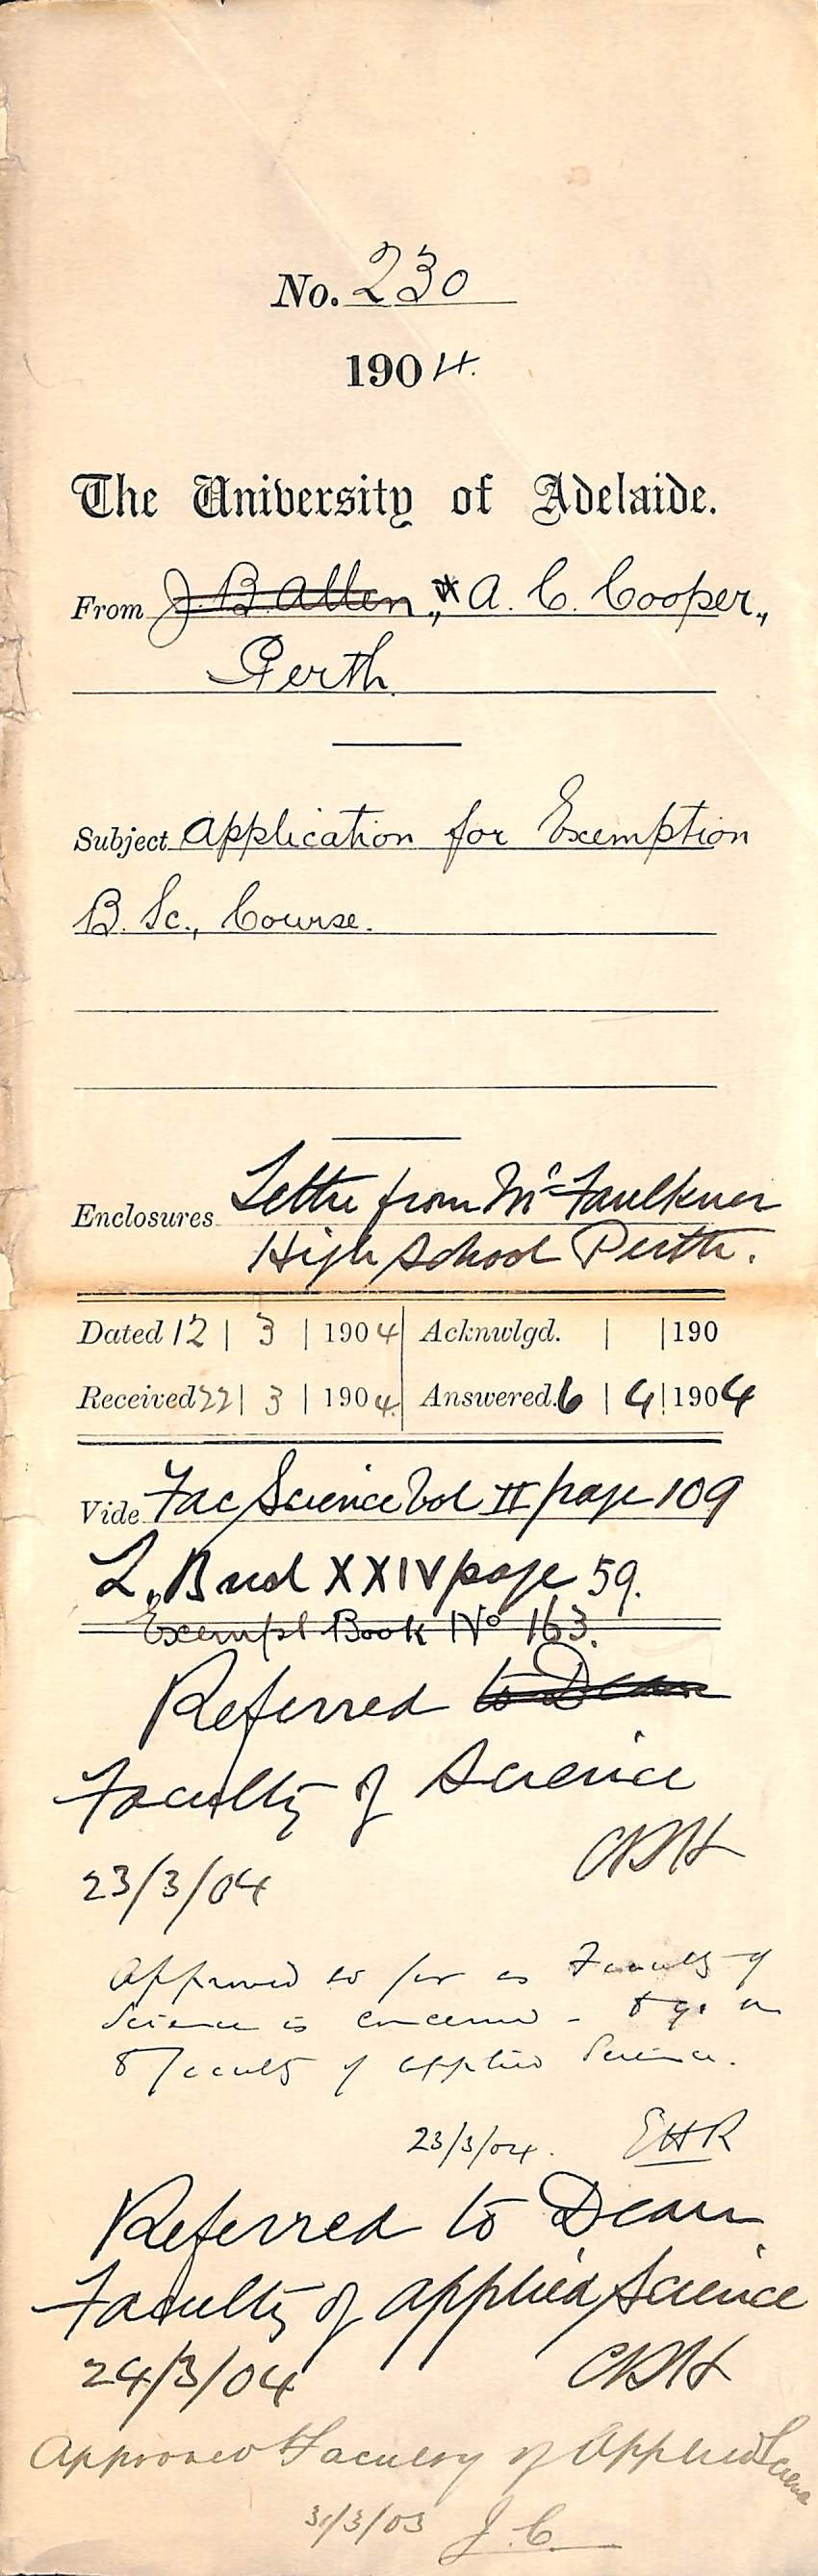 No. 230
1904.
The University of Adelaide.
From J. B. Allen, * A. C. Cooper.,
Perth.
Subject Application for Exemption
B. Sc., Course.
Enclosures Letter from Mr Faulkner
High School Perth.
Dated 12 | 3 | 1904 Acknwlgd. | | 190
Received 22 | 3 | 1904. Answered. 6 | 4 | 1904
Vide Fac Science Vol II page 109
L. B vol XXIV page 59.
Exempt Book No 163.
Referred to Dean
Faculty of Science
23/3/04 CRH
Approved so far as Faculty of
Science is concerned - to go on
to Faculty of Applied Science.
23/3/04. EHR
Referred to Dean
Faculty of Applied Science
24/3/04 CRH
Approved Faculty of Applied Science
31/3/03 J. C.